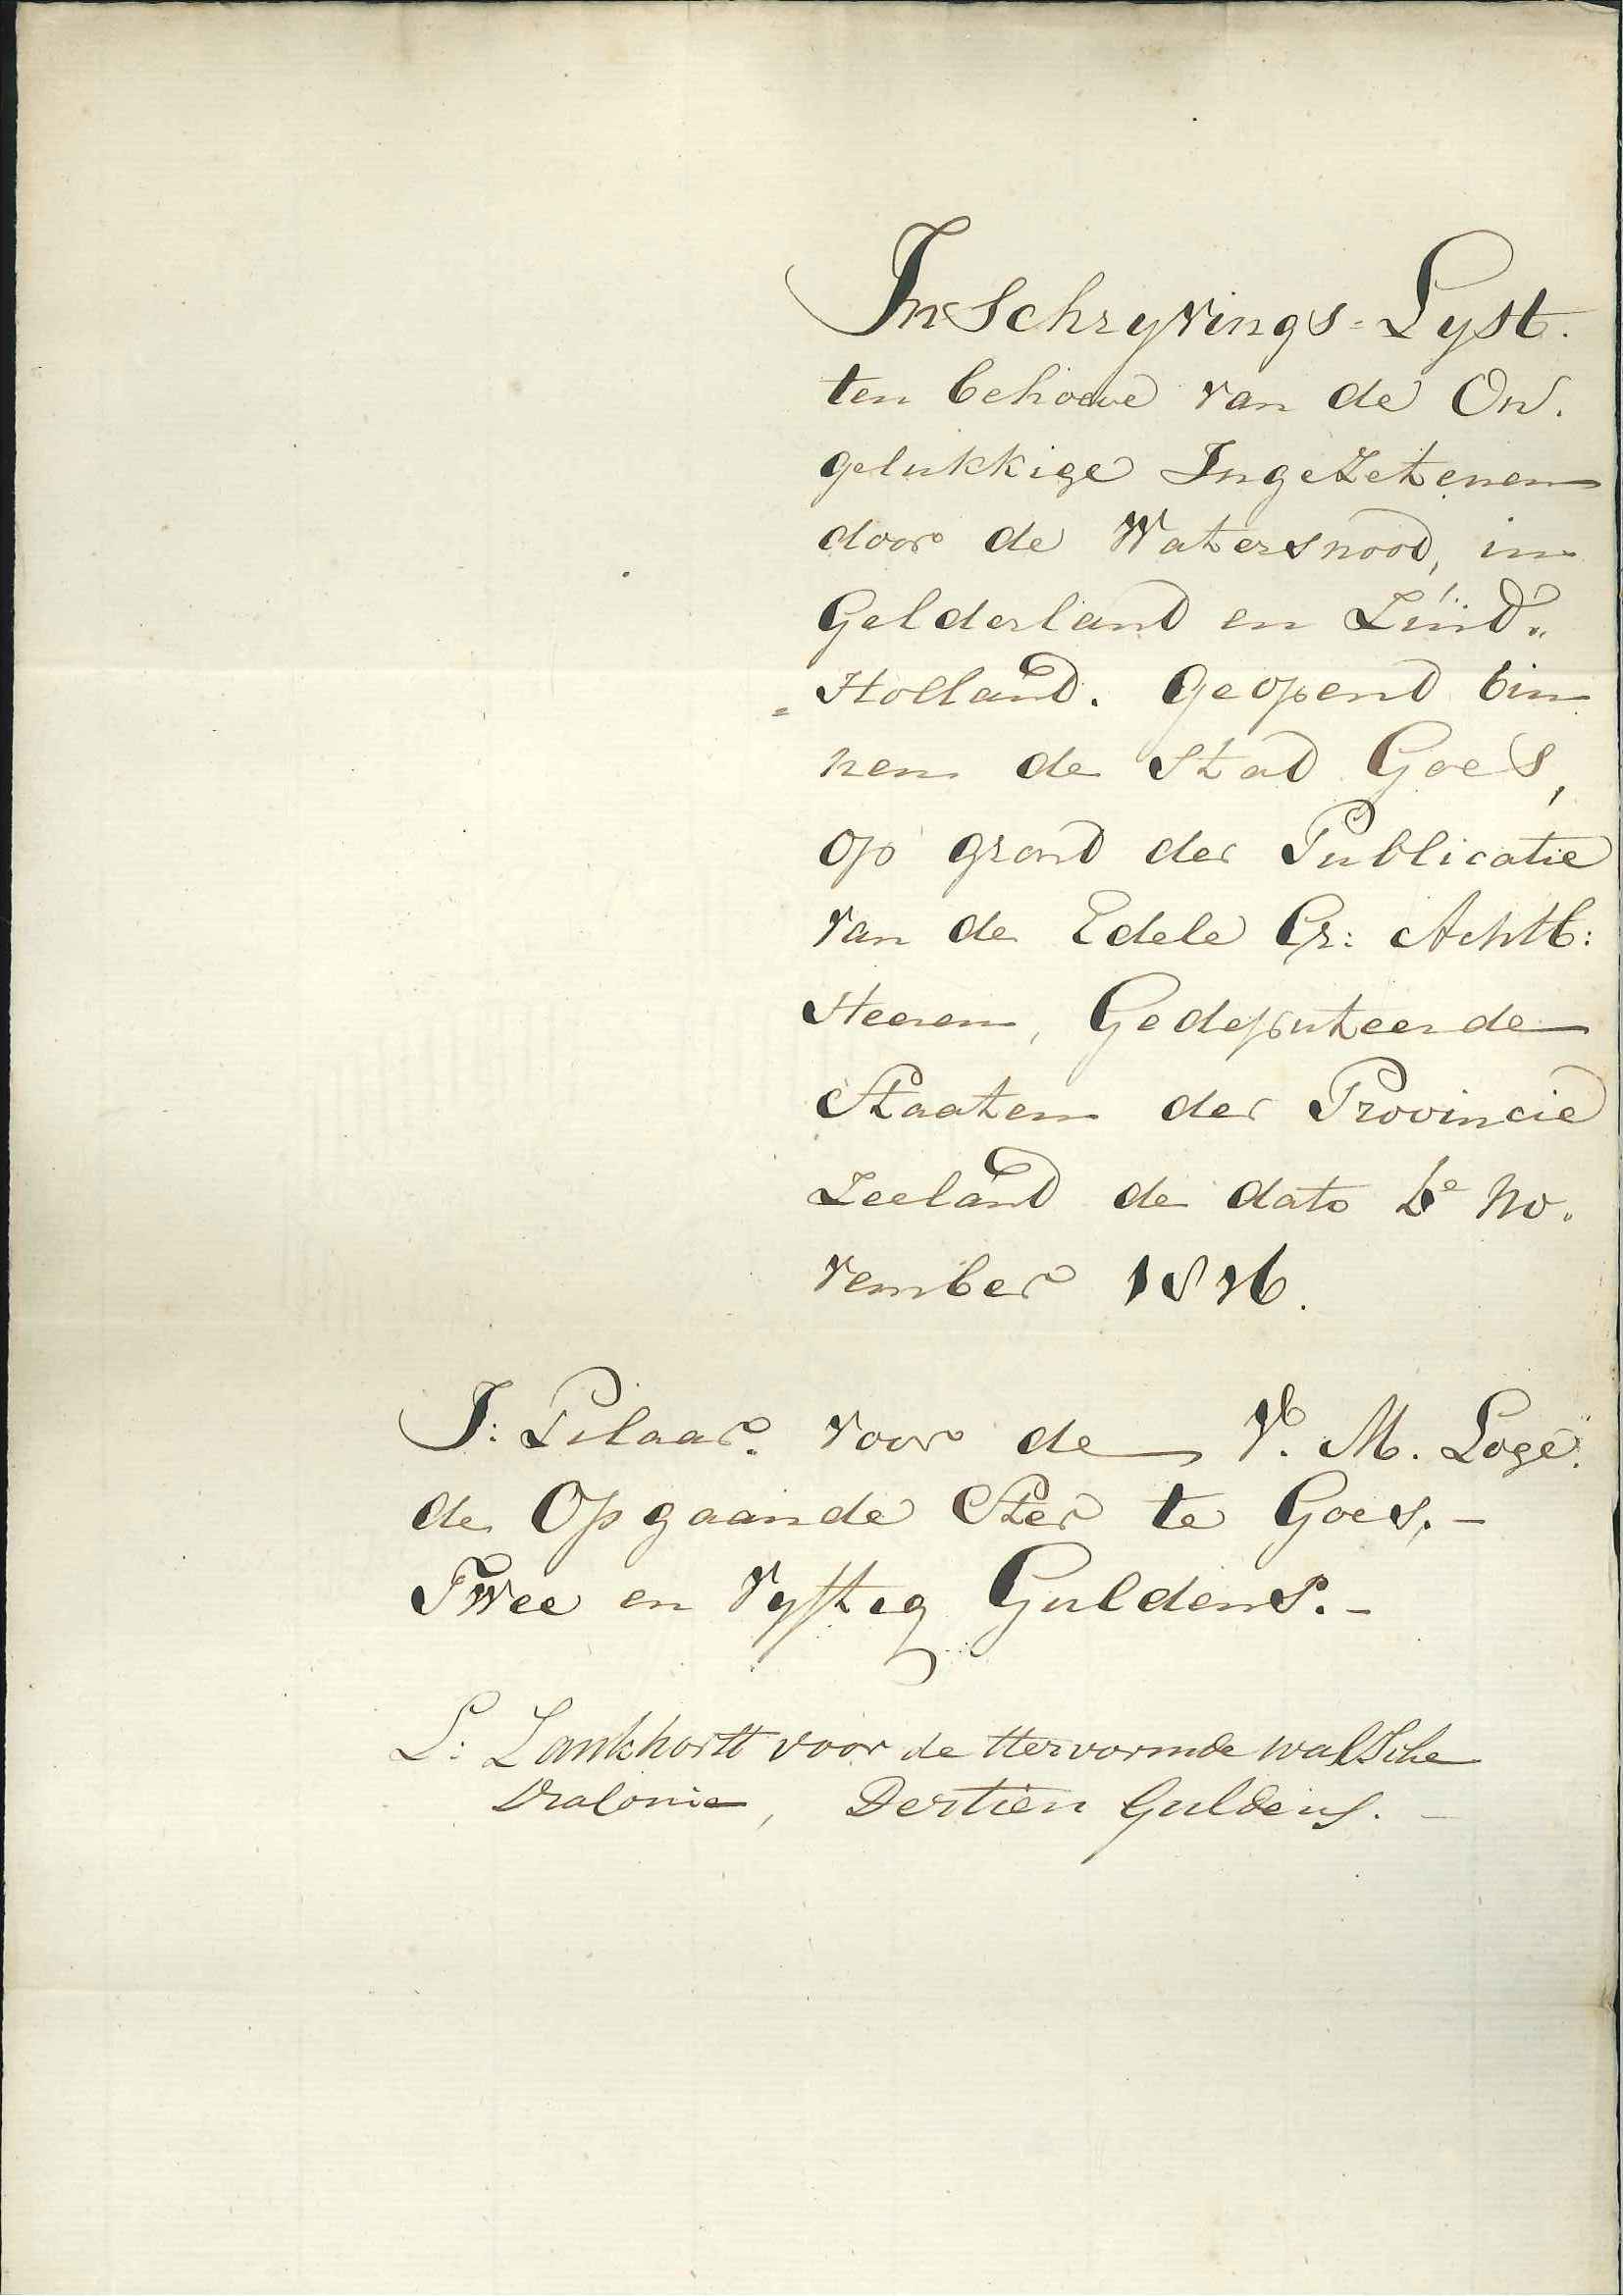 Inschryvings=Lyst.
ten behoeve van de On.
gelukkige Ingezetenen
door de Watersnood, in
Gelderland en Zuid„
=Holland. Geopend bin
nen de Stad Goes,
op grond der Publicatie
van de Edele Gr: Achtb:
Heeren, Gedeputeerde
Staaten der Provincie
Zeeland de dato No.
vember 1816.
J: Pilaar. voor de V. M. Loge.
de Opgaande Ster te Goes.-
Twee en Vyftig Guldens.-
L: Lankhorst voor de Hervormde walsche
Diakonie, Dertien Guldens. -